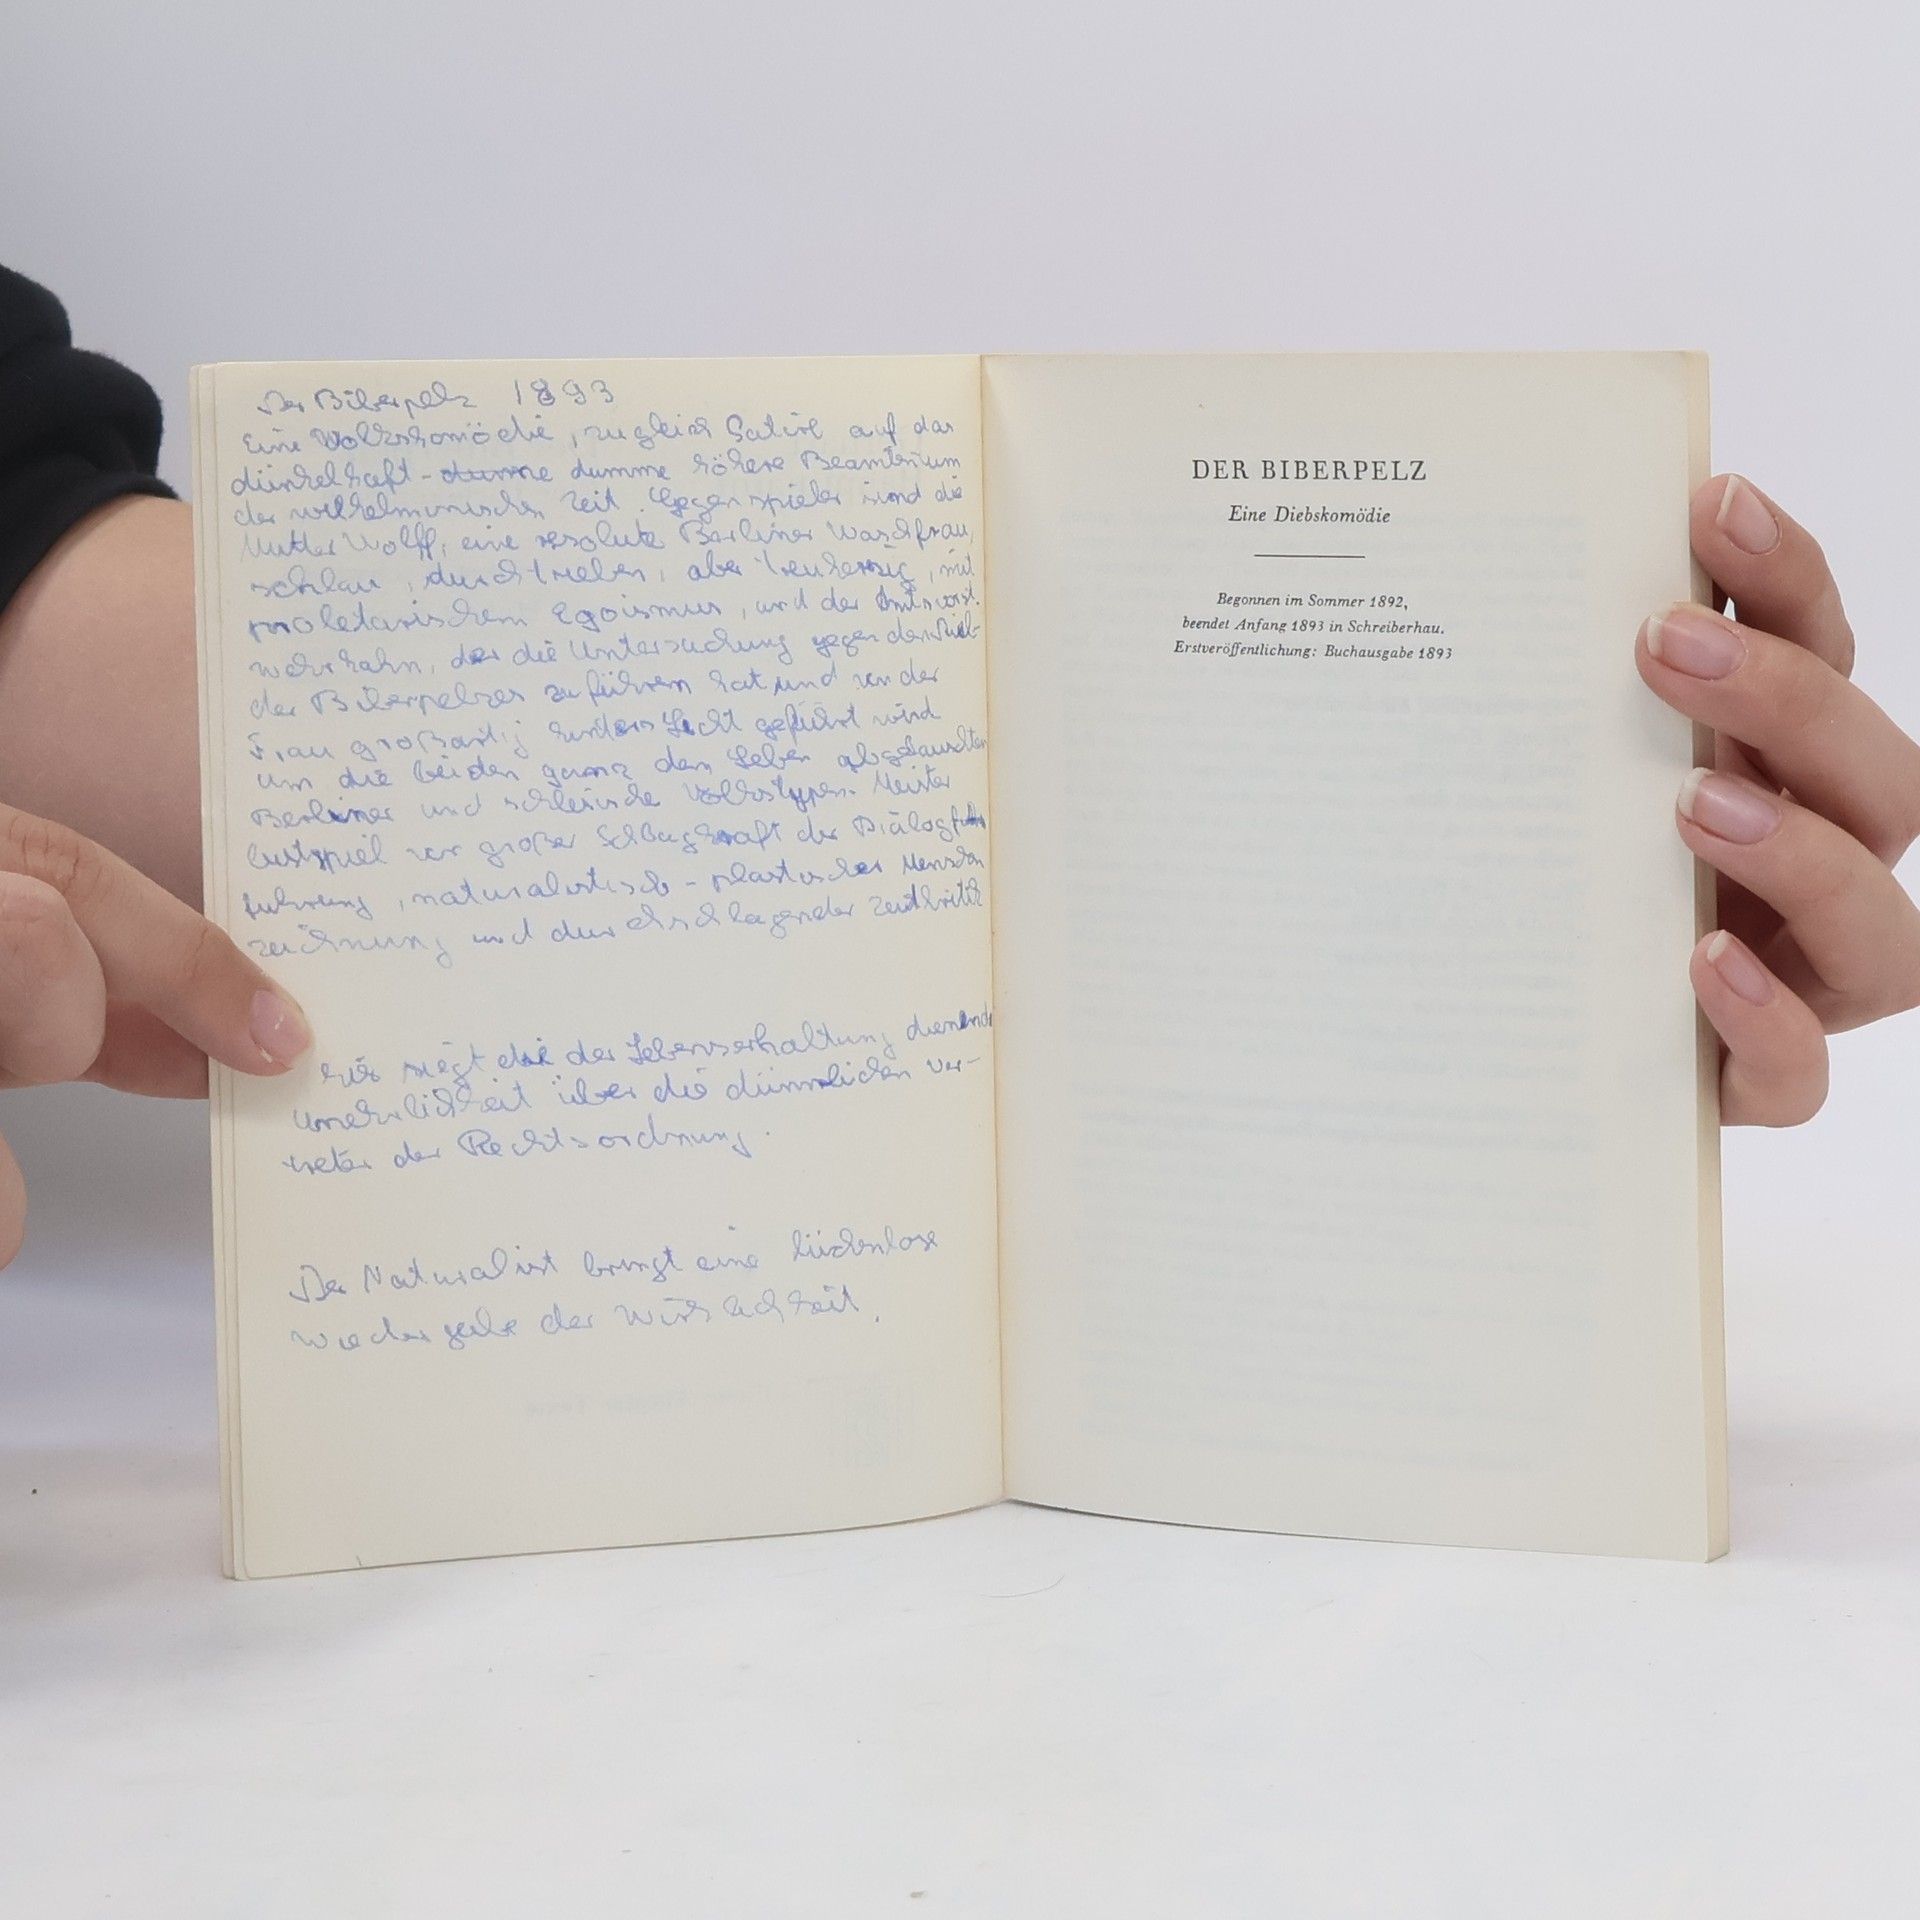 Der Biberpelz 1893
Eine Volkskomödie, zugleich Satire auf das
dünkelhaft - dumme dumme höhere Beamtentum
der wilhelminischen Zeit. Gegenspieler sind die
Mutter Wolff, eine resolute Berliner Waschfrau,
schlau, durchtrieben, aber treuherzig, mit
proletarischem Egoismus, und der Amtsvorst.
Wehrhahn, der die Untersuchung gegen den
des Biberpelzes zu führen hat und von der
Frau großartig hinters Licht geführt wird
um die beiden ganz dem Leben abgelauschten
Berliner und schlesische Volkstypen. Meister
lustspiel von großer Schlagkraft der Dialog
führung, naturalistisch - plastischer Menschen
zeichnung und durchschlagender Zeitkritik
Hier siegt die der Lebenserhaltung dienende
Unehrlichkeit über die dümmlichen Ver-
treter der Rechtsordnung.
Der Naturalist bringt eine lückenlose
Wiedergabe der Wirklichkeit.
DER BIBERPELZ
Eine Diebskomödie
Begonnen im Sommer 1892,
beendet Anfang 1893 in Schreiberhau.
Erstveröffentlichung: Buchausgabe 1893